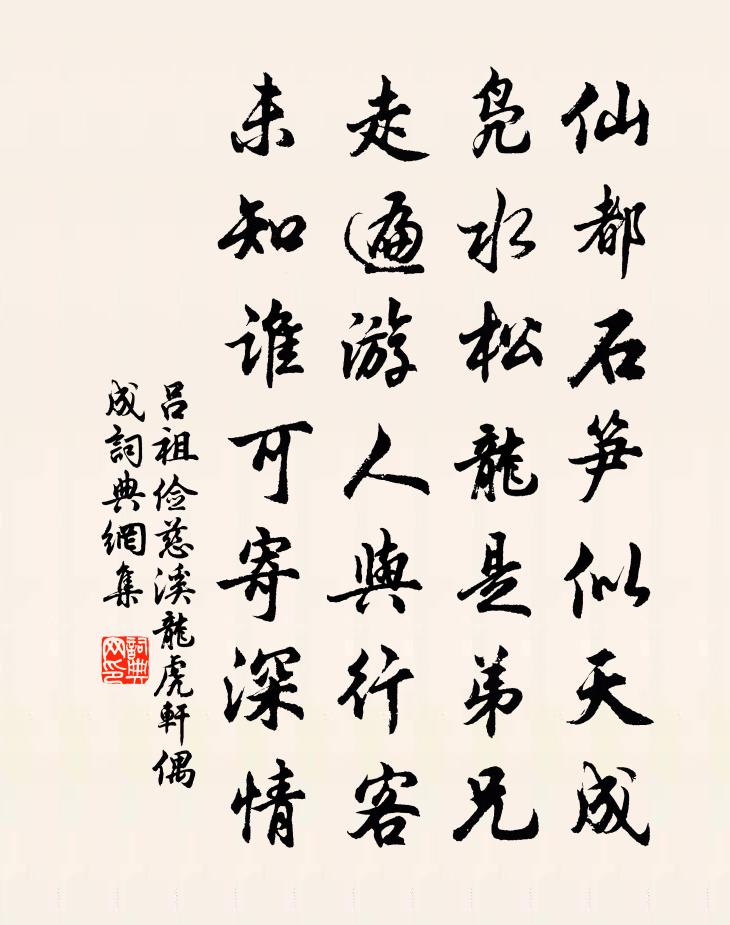 仙都石笋似天成
凫水松龍是弟兄
走遍游人與行客
未知誰可寄深情
吕祖俭慈溪龍虎軒偶
成詞典網集
詞典
网印